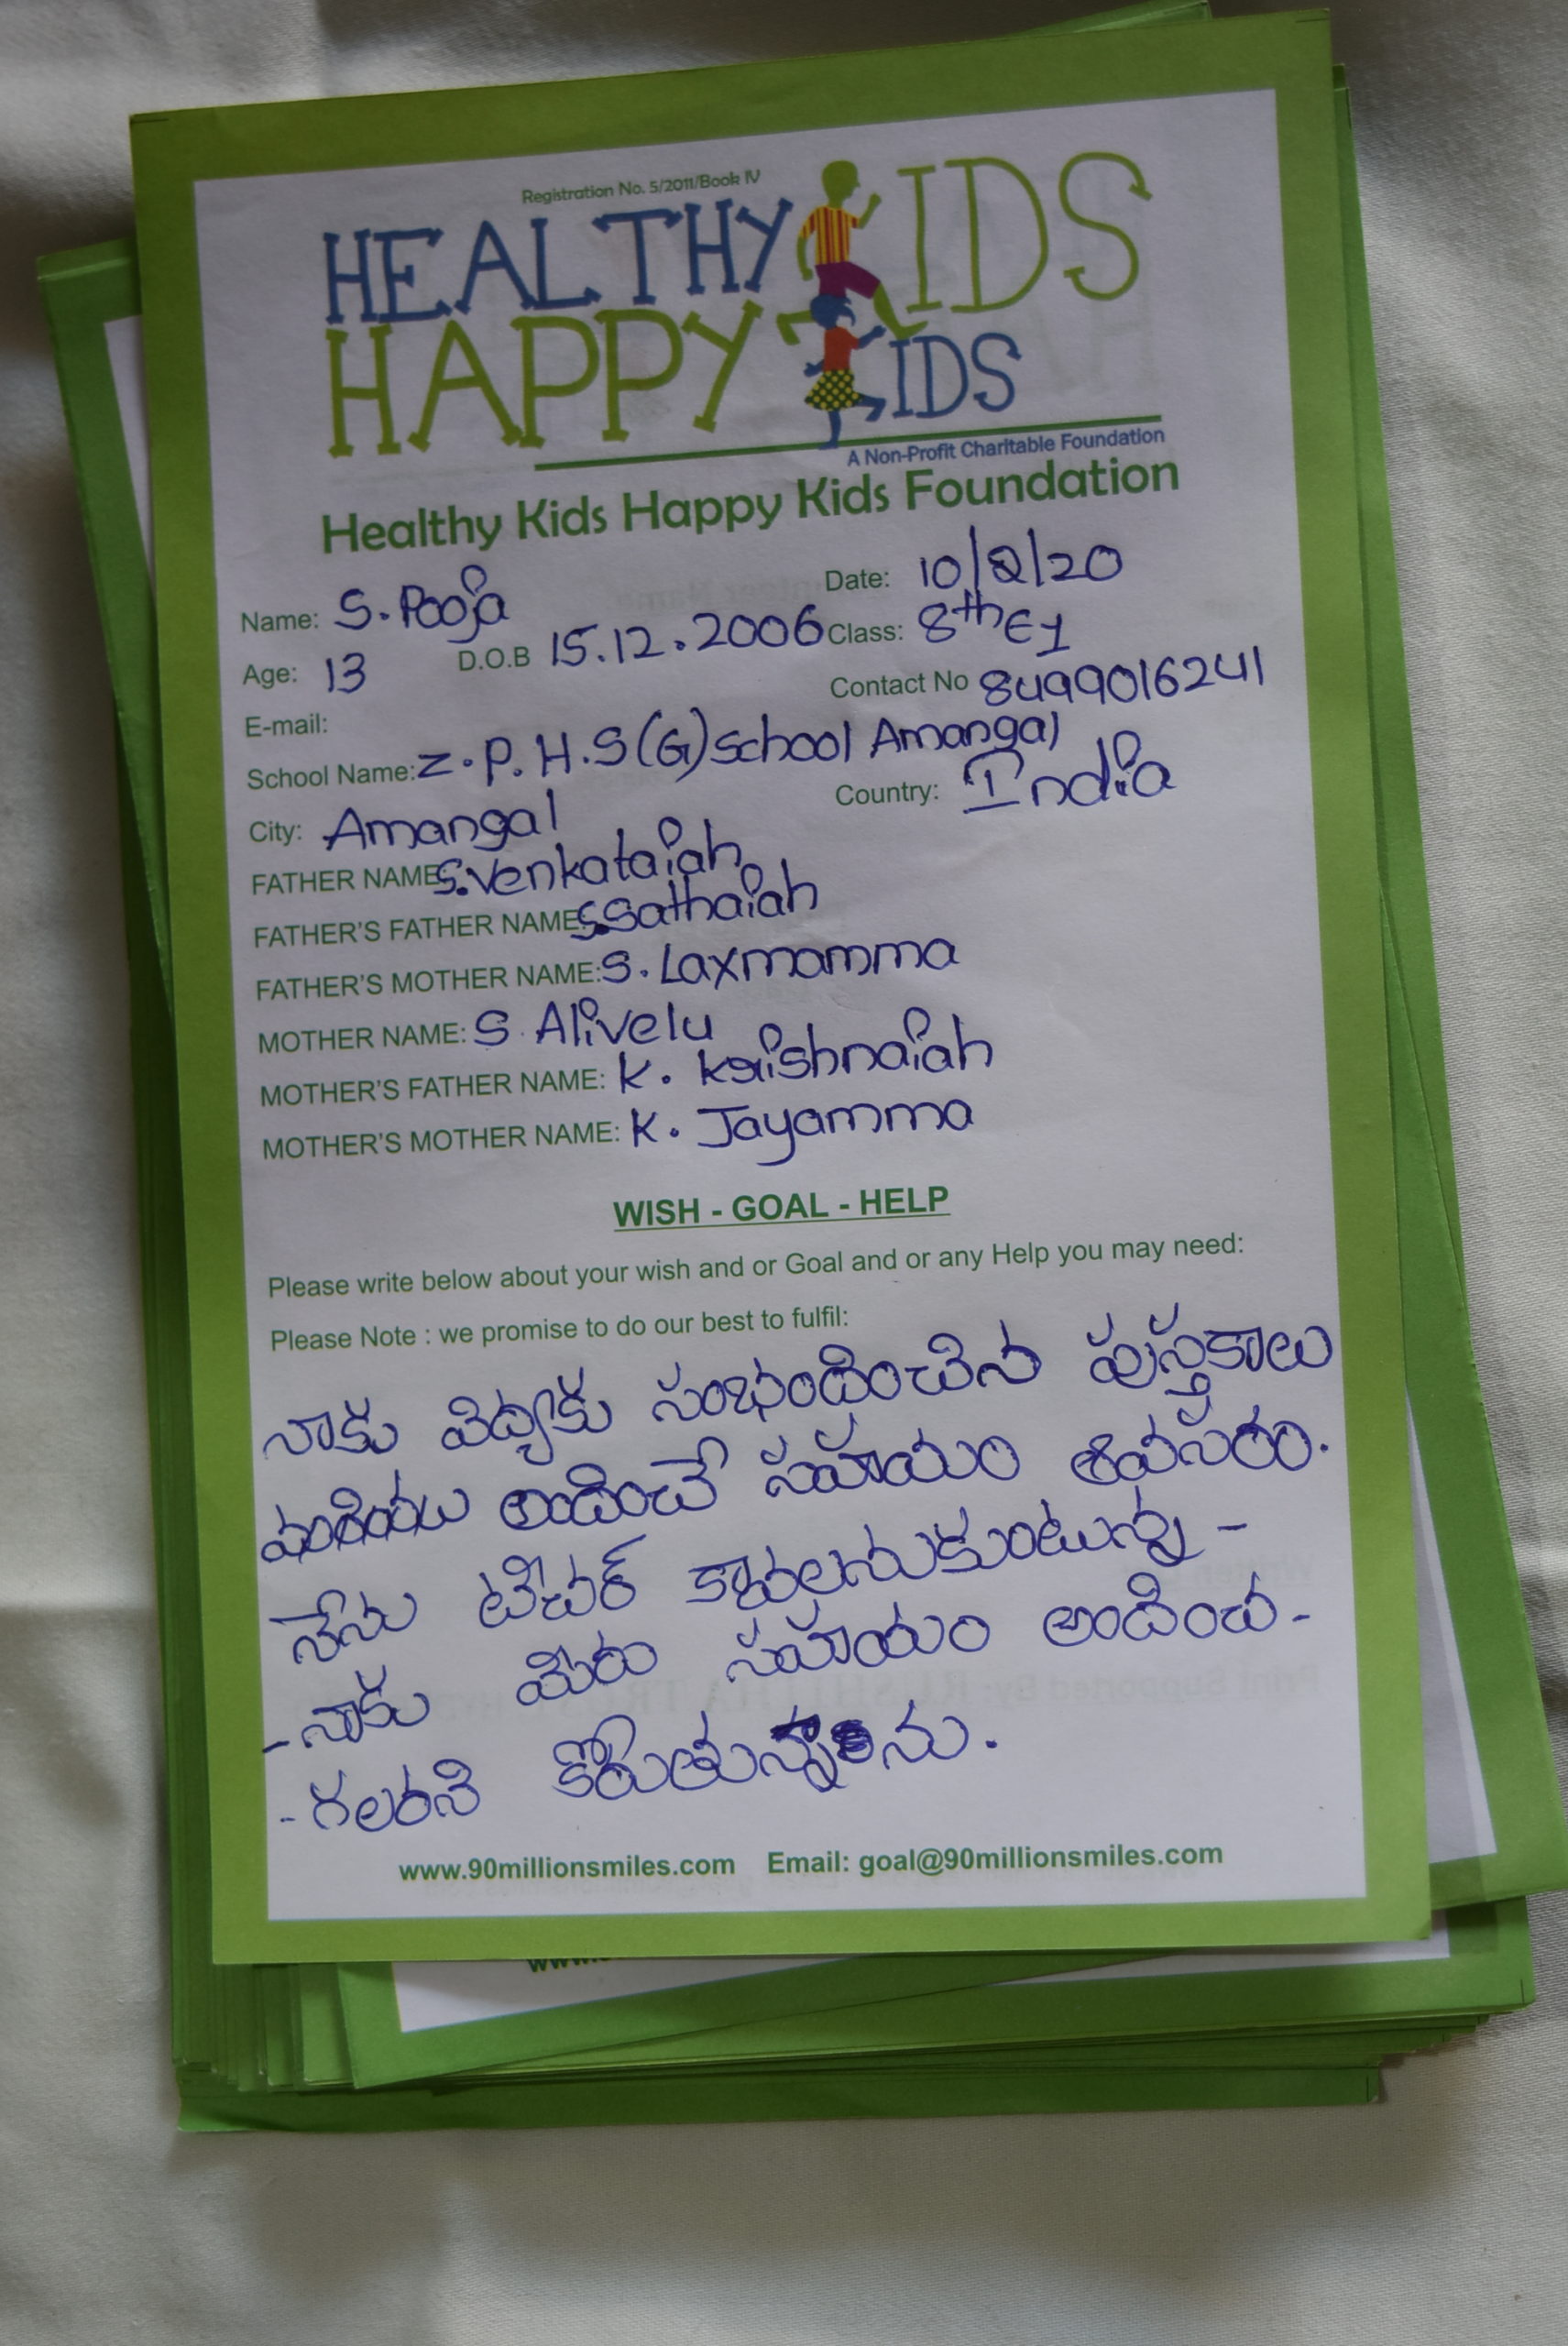 Registration No. 5/2011/Book IV
HEALTHY KIDS
HAPPY KIDS
A Non-Profit Charitable Foundation
Healthy Kids Happy Kids Foundation
Name: S. Pooja Date: 10/2/20
Age: 13 D.O.B 15.12.2006 Class: 8th E1
E-mail: Contact No 8499016241
School Name: Z.P.H.S(G) school Amangal
City: Amangal Country: India
FATHER NAME: S.Venkataiah
FATHER'S FATHER NAME: S.Sathaiah
FATHER'S MOTHER NAME: S. Laxmamma
MOTHER NAME: S Alivelu
MOTHER'S FATHER NAME: K. Krishnaiah
MOTHER'S MOTHER NAME: K. Jayamma
WISH - GOAL - HELP
Please write below about your wish and or Goal and or any Help you may need:
Please Note : we promise to do our best to fulfil:
నాకు విద్యకు సంభందించిన పుస్తకాలు
మరియు అందించే సహయం అవసరం.
నేను టిచర్ కావలనుకుంటున్న -
- నాకు మీరు సహయం అందించ -
- గలరని కోరుతున్నాను.
www.90millionsmiles.com Email: goal@90millionsmiles.com